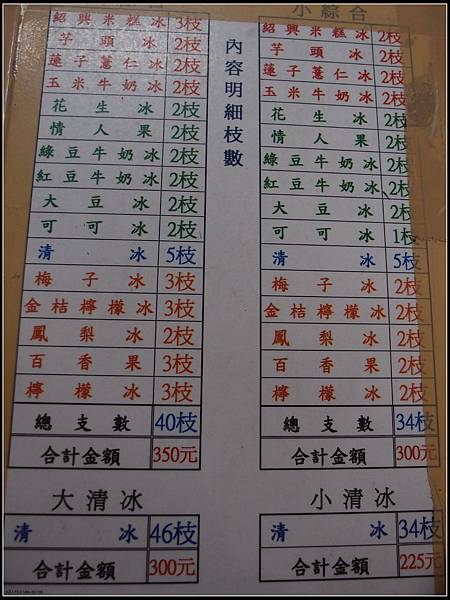 綜合
紹興米糕冰 3枝
芋頭冰 2枝
蓮子薏仁冰 2枝
玉米牛奶冰 2枝
花生冰 2枝
情人果 2枝
綠豆牛奶冰 2枝
紅豆牛奶冰 2枝
大豆冰 2枝
可可冰 2枝
清冰 5枝
梅子冰 3枝
金桔檸檬冰 3枝
鳳梨冰 2枝
百香果 3枝
檸檬冰 3枝
總支數 40枝
合計金額 350元
內容明細枝數
小綜合
紹興米糕冰 2枝
芋頭冰 2枝
蓮子薏仁冰 2枝
玉米牛奶冰 2枝
花生冰 2枝
情人果 2枝
綠豆牛奶冰 2枝
紅豆牛奶冰 2枝
大豆冰 2枝
可可冰 1枝
清冰 5枝
梅子冰 2枝
金桔檸檬冰 2枝
鳳梨冰 2枝
百香果 2枝
檸檬冰 2枝
總支數 34枝
合計金額 300元
大清冰
清冰 46枝
合計金額 300元
小清冰
清冰 34枝
合計金額 225元